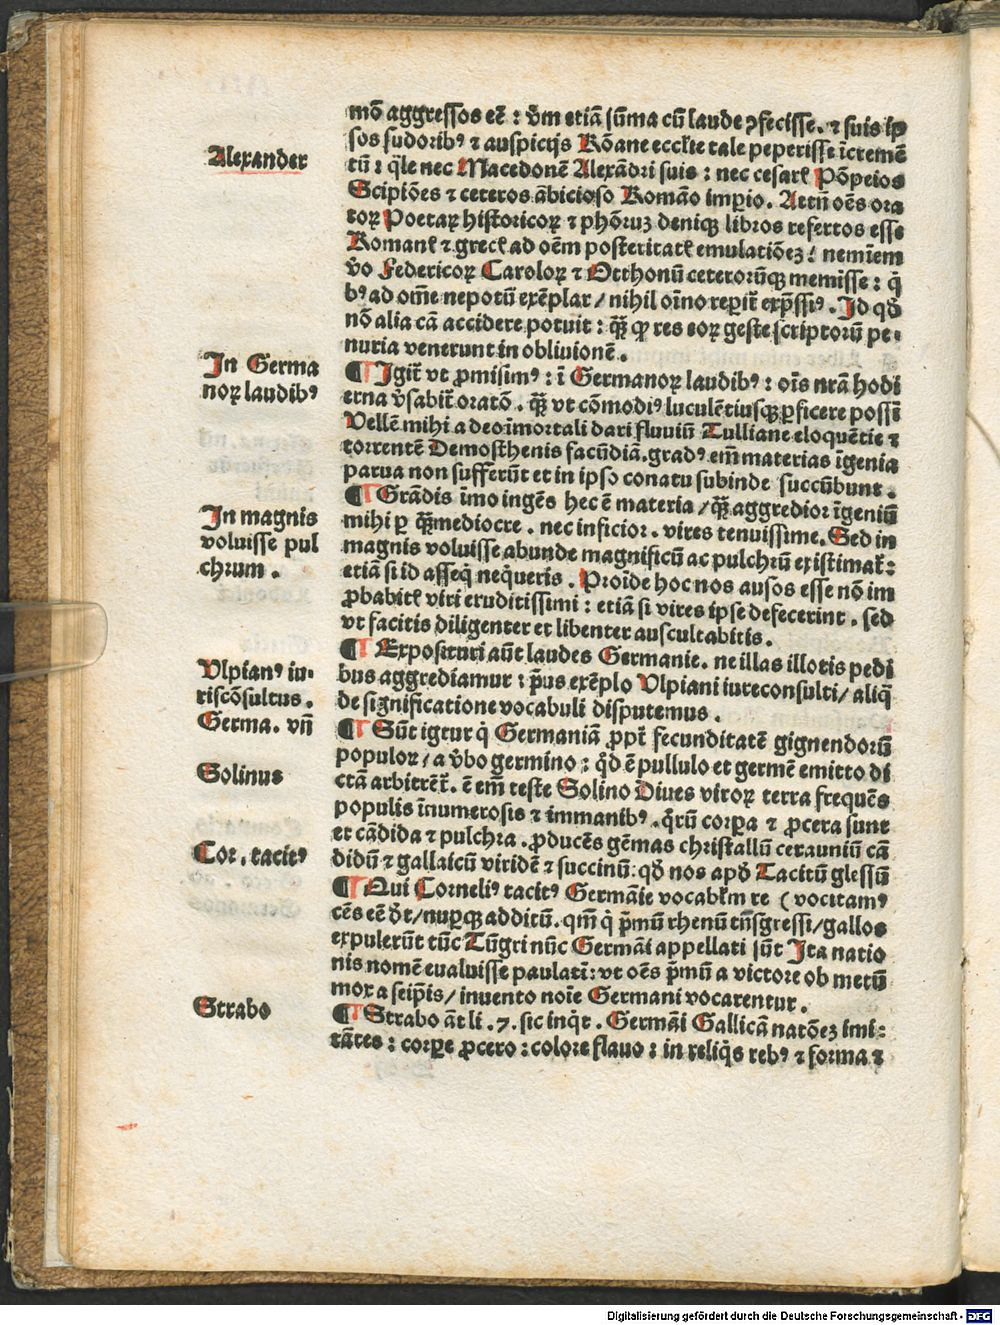 mõ aggressos eē : vͤm etiã sũma cũ laude ꝯfecisse. ⁊ suis ip
sos sudoribꝰ ⁊ auspicijs Rõane eccłie tale peperisse ĩcremẽ
Alexander
tũ : q̃le nec Macedonẽ Alexãdri suis : nec cesarẽ Põpeios
Scipiões ⁊ ceteros ãbicioso Romão imp̱io. Attñ oẽs ora
toꝝ Poetaꝝ historicoꝝ ⁊ phõruz deniqꝫ libros refertos esse
Romanẽ ⁊ grecẽ ad oẽm posteritatẽ emulatiõez : neminem
v̊o Federicoꝝ Caroloꝝ ⁊ Otthonũ ceterorũqꝫ memisse : q̇
bꝰ ad om̃e nepotũ exẽplar / nihil oĩno reperiť exp̃ssiꝰ. Id qđ
nõ alia cã accidere potuit : q̃ꝫ ꝙ res eoꝝ geste scriptorũ pe-
nuria venerunt in obliuionẽ.
In Germa
noꝝ laudibꝰ
¶ Igiť vt ꝓmisimꝰ : ĩ Germanoꝝ laudibꝰ : oĩs nr̃a hodi
erna v̓sabiť oratõ. q̃ꝫ vt cõmodiꝰ luculẽtiusqꝫ ꝑficere possẽ
Vellẽ mihi a deo ĩmortali dari fluuiũ Tulliane eloquẽtie ⁊
torrentẽ Demosthenis facũdiã. gradꝰ em̃ materias ĩgenia
parua non sufferũt et in ipso conatu subinde succũbunt.
¶ Grãdis ĩmo ingẽs hec ẽ materia / q̃ꝫ aggredior ĩgeniũ
In magnis
voluisse pul
chrum.
mihi ꝑ q̃ꝫ mediocre. nec inficior. vires tenuissime. Sed in
magnis voluisse abunde magnificũ ac pulchrũ existimať :
etiã si id asseq̇ neq̇ueris. Proĩde hoc nos ausos esse nõ im
ꝓbabitẽ viri eruditissimi : etiã si vires ipse defecerint. sed
vt facitis diligenter et libenter auscultabitis.
¶ Exposituri aũt laudes Germanie. ne illas illotis pedi
Vlpianꝰ iu-
riscõsultus.
bus aggrediamur : p̃us exẽplo Vlpiani iureconsulti / aliq̇
de significatione vocabuli disputemus.
Germa. vñ
¶ Sũt igitur q̇ Germaniã ꝓpť fecunditatẽ gignendorũ
populoꝝ / a v̓bo germino : qđ ẽ pullulo et germẽ emitto di
Solinus
ctã arbitrẽť. ẽ em̃ teste Solino Diues viroꝝ terra frequẽs
populis ĩnumerosis ⁊ immanibꝰ. q̊rũ corꝑa ⁊ ꝓcera sunt
et cãdida ⁊ pulchra. ꝓducẽs gẽmas christallũ cerauniũ cã
Cor. tacitꝰ
didũ ⁊ gallaicũ viridẽ ⁊ succinũ : qđ nos apđ Tacitũ glessũ
¶ Qui Corneliꝰ tacitꝰ Germãie vocabłm re ( vocitamꝰ
cẽs eẽ đt / nuꝑqꝫ additũ. qm̃ q̇ p̃mũ rhenũ tñsgressi / gallos
expulerũt tũc Tũgri nũc Germãi appellati sũt Ita natio
nis nomẽ eualuisse paulati : vt oẽs p̃mũ a victore ob metũ
mox a seip̃is / inuento noĩe Germani vocarentur.
Strabo
¶ Strabo ãt li. 7. sic inq̇t. Germãi Gallicã natõez imi-
tãtes : corꝑe ꝓcero : colore flauo : in reliq̇s rebꝰ ⁊ forma ⁊
Digitalisierung gefördert durch die Deutsche Forschungsgemeinschaft - DFG